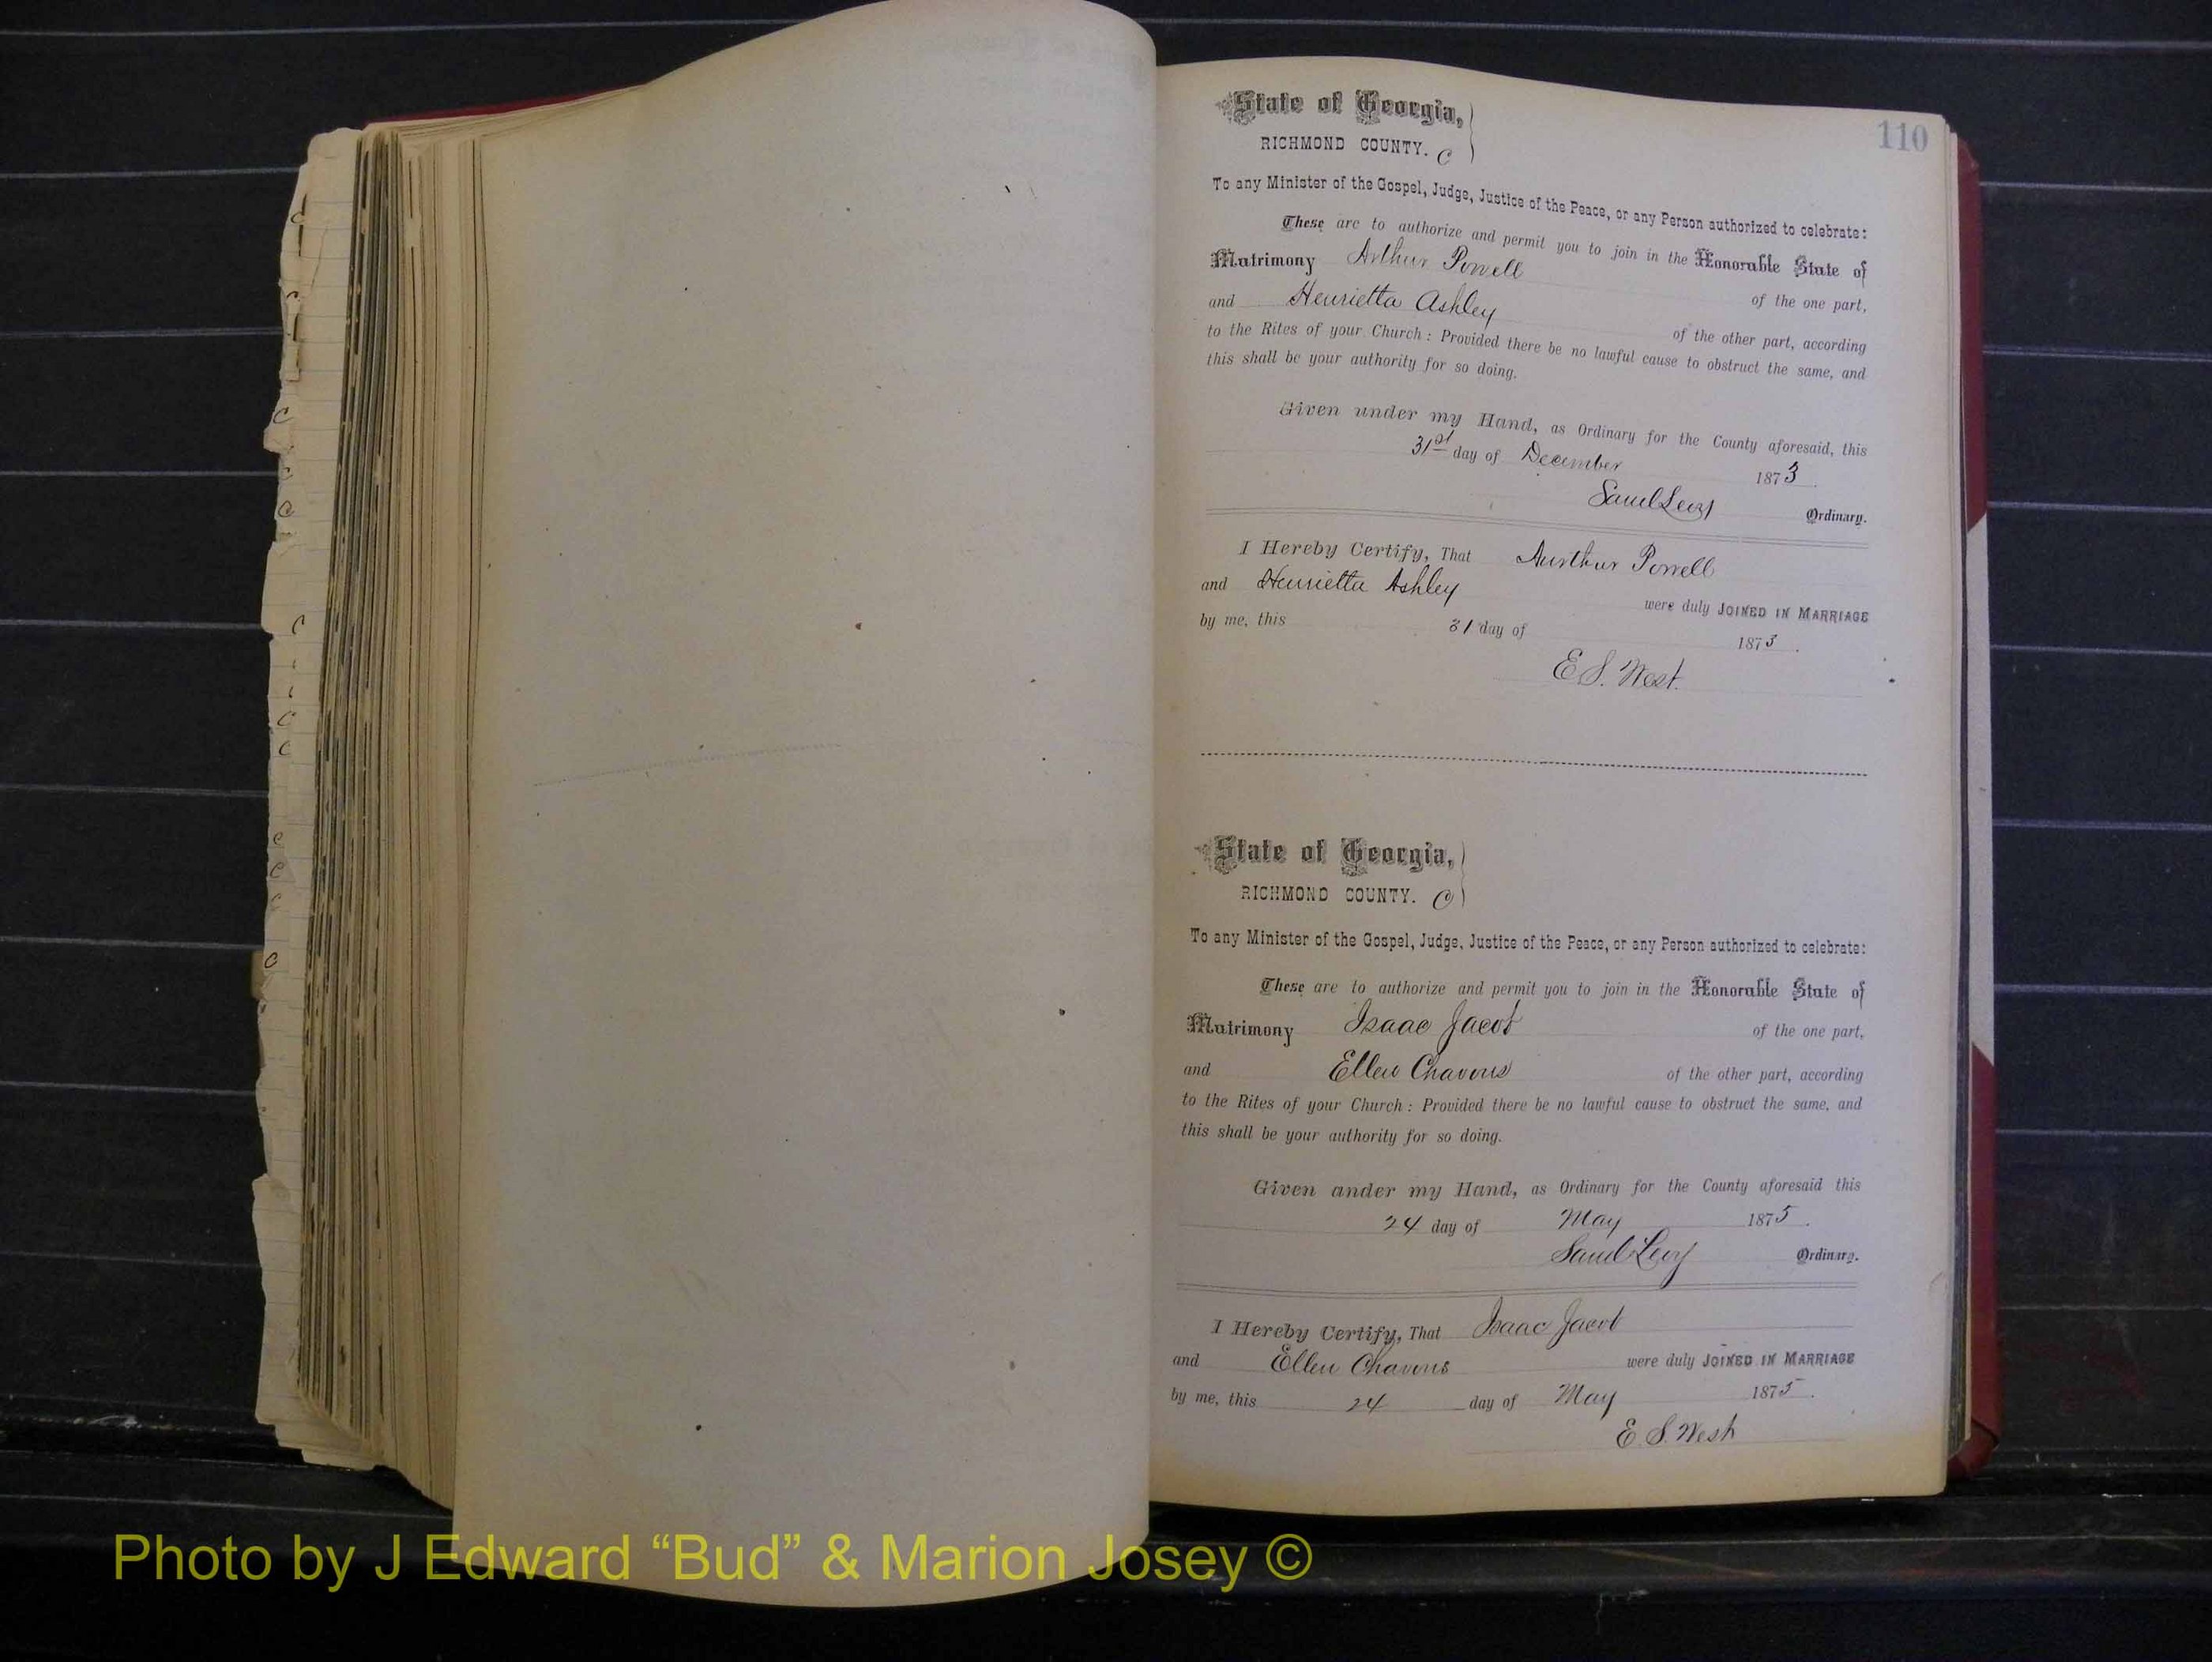 110
State of Georgia,
RICHMOND COUNTY. C
To any Minister of the Gospel, Judge, Justice of the Peace, or any Person authorized to celebrate:
These are to authorize and permit you to join in the Honorable State of
Matrimony Arthur Powell
of the one part,
and Henrietta Ashley
of the other part, according
to the Rites of your Church: Provided there be no lawful cause to obstruct the same, and
this shall be your authority for so doing.
Given under my Hand, as Ordinary for the County aforesaid, this
31st day of December 1873.
Saml Levy Ordinary.
I Hereby Certify, That Aurthur Powell
and Henrietta Ashley were duly JOINED IN MARRIAGE
by me, this 31 day of 1873.
E. S. West.
State of Georgia,
RICHMOND COUNTY. C
To any Minister of the Gospel, Judge, Justice of the Peace, or any Person authorized to celebrate:
These are to authorize and permit you to join in the Honorable State of
Matrimony Isaac Jacob of the one part,
and Ellen Chavous of the other part, according
to the Rites of your Church: Provided there be no lawful cause to obstruct the same, and
this shall be your authority for so doing.
Given under my Hand, as Ordinary for the County aforesaid this
24 day of May 1875.
Saml Levy Ordinary.
I Hereby Certify, That Isaac Jacob
and Ellen Chavous were duly JOINED IN MARRIAGE
by me, this 24 day of May 1875.
E. S. West
Photo by J Edward “Bud” & Marion Josey ©